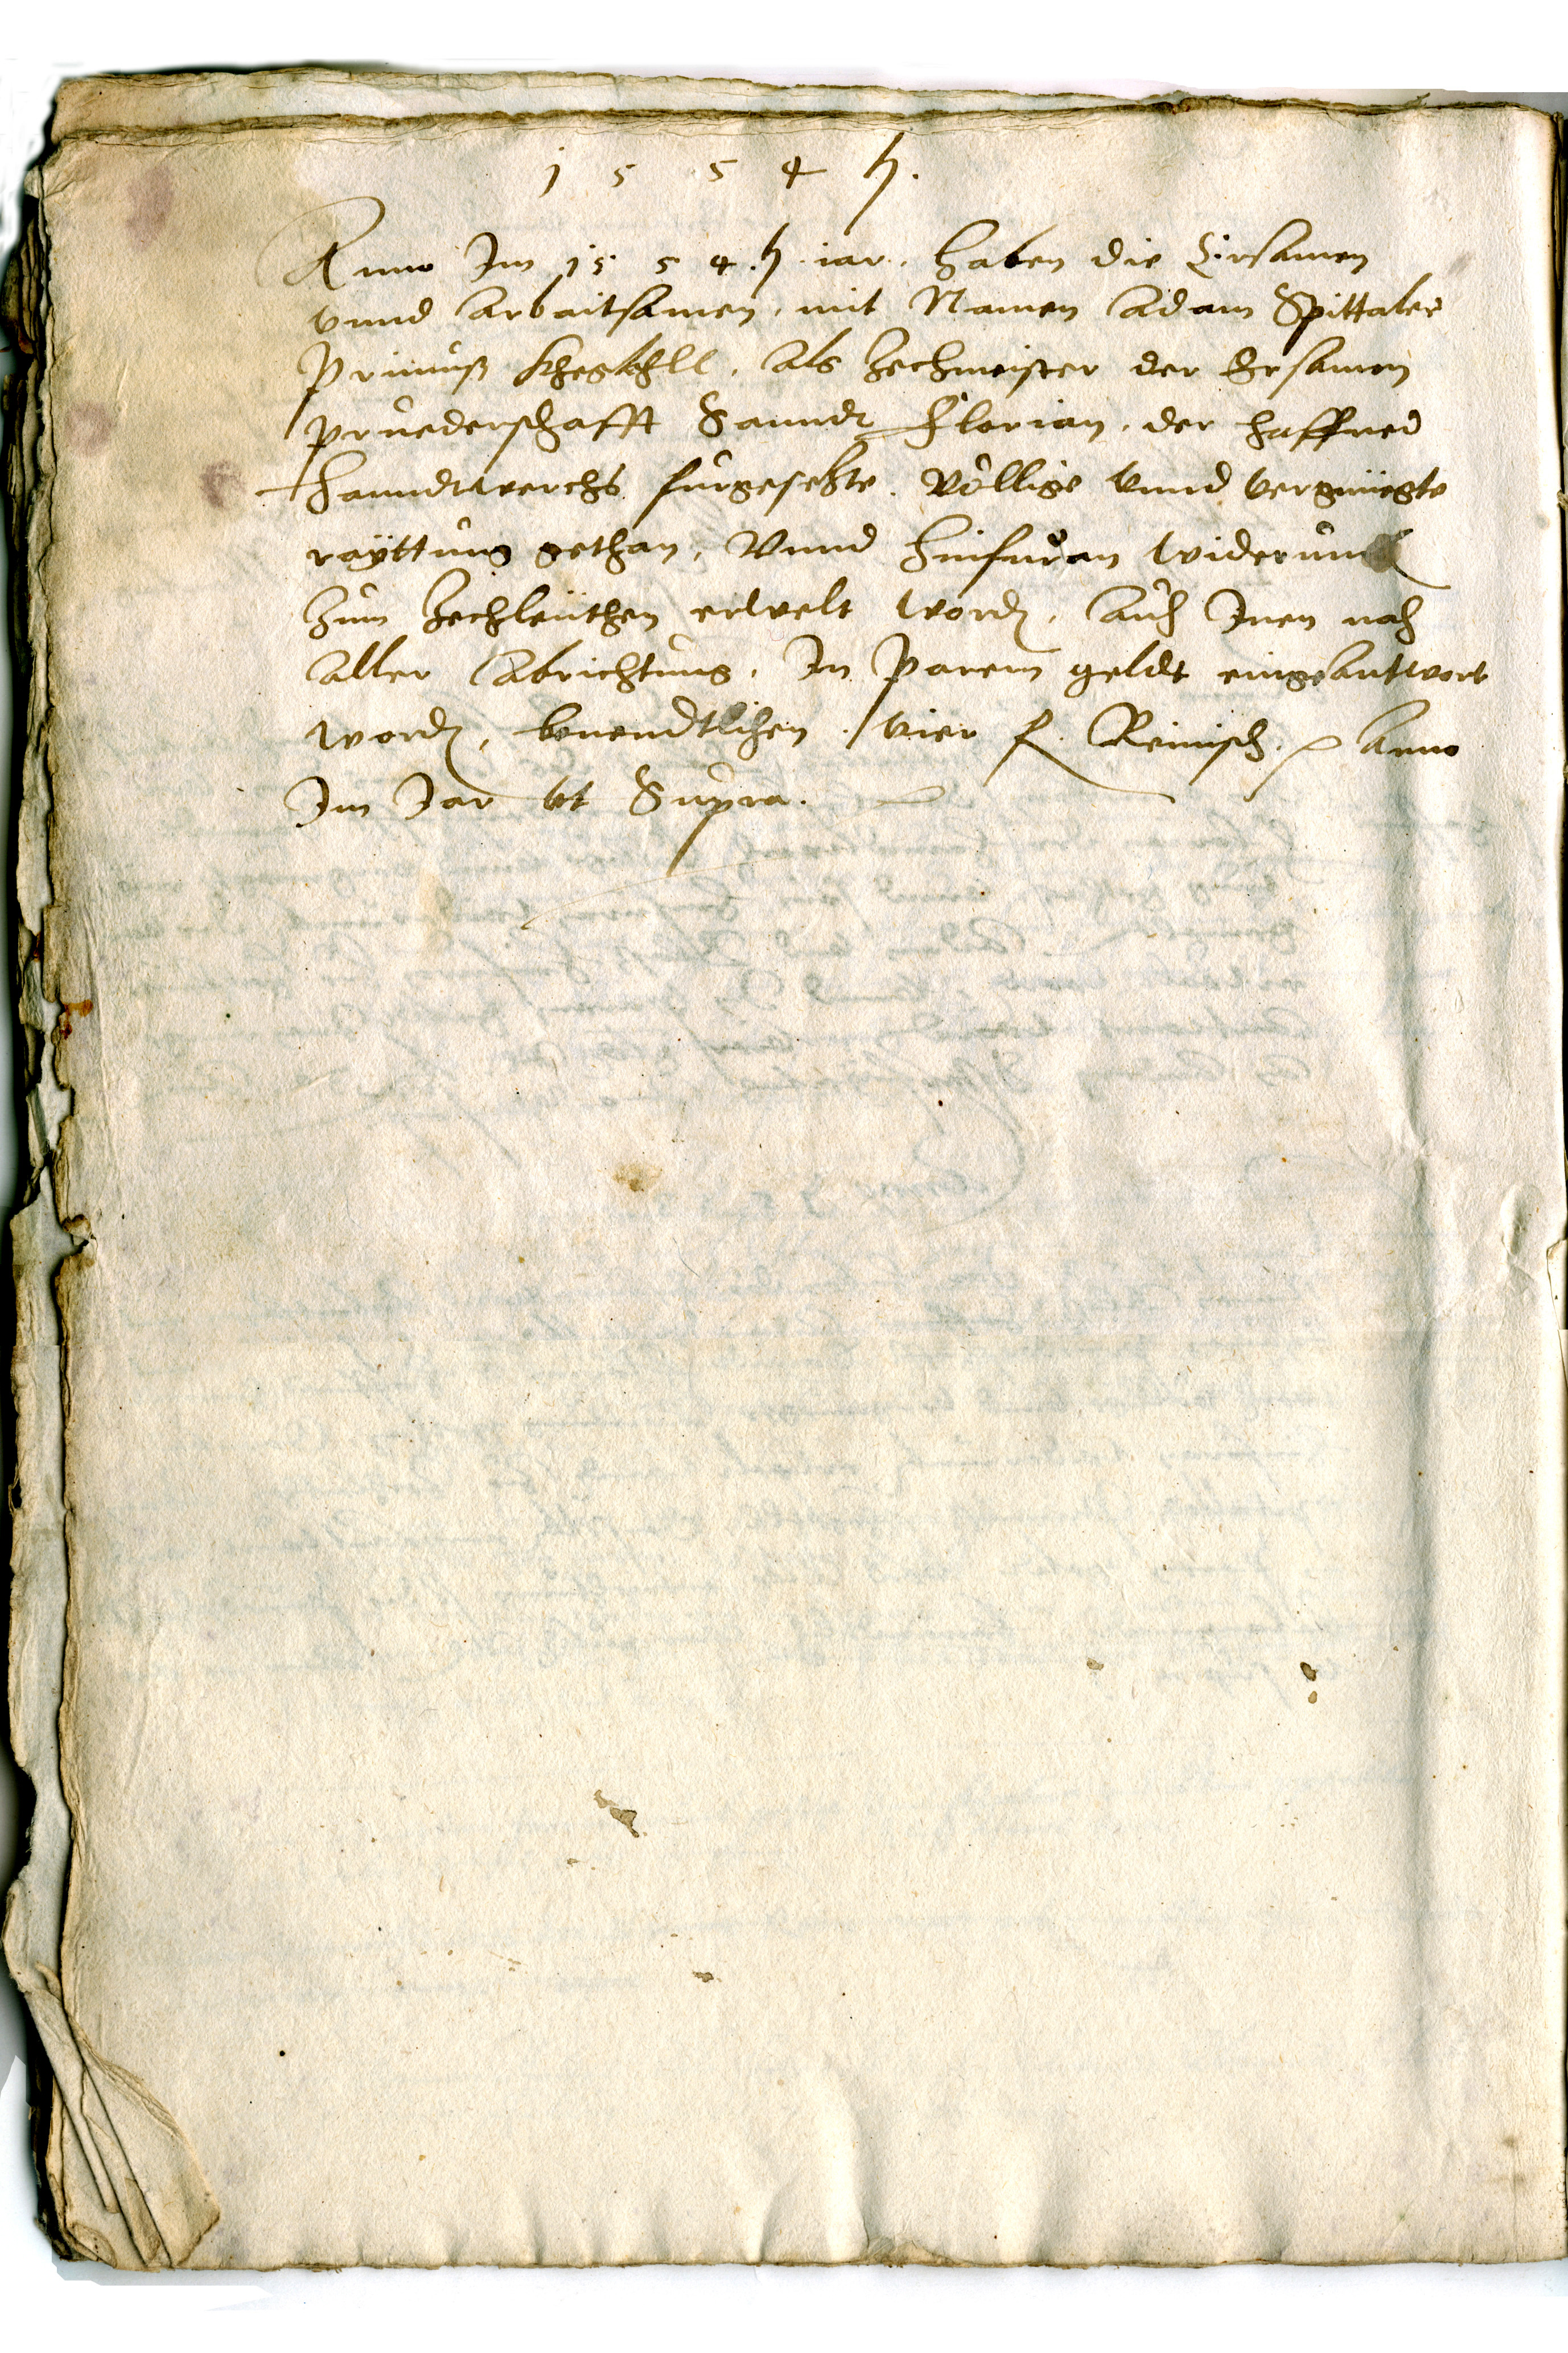 1 5 5 4 h.
Anno Im 15 5 4. h. iar. haben die Ersamen
vnnd Arbaitsamen, mit Namen Adam Spittaler
Primuß, als Zechmeister der Ersamen
Pruederschafft Sannd Florian, der Haffner
Hanndtwerchs fürgesetzte. Völlige vnnd vergnüegte
rayttung gethan, Vnnd hinfuran widerumb
zum Zechleüthen erwelt word, auch Inen nach
aller Abrichtung, In Parem geldt eingeantwort
word, benendtlichen / vier f. Reinisch. Anno
Im Jar vt Supra.